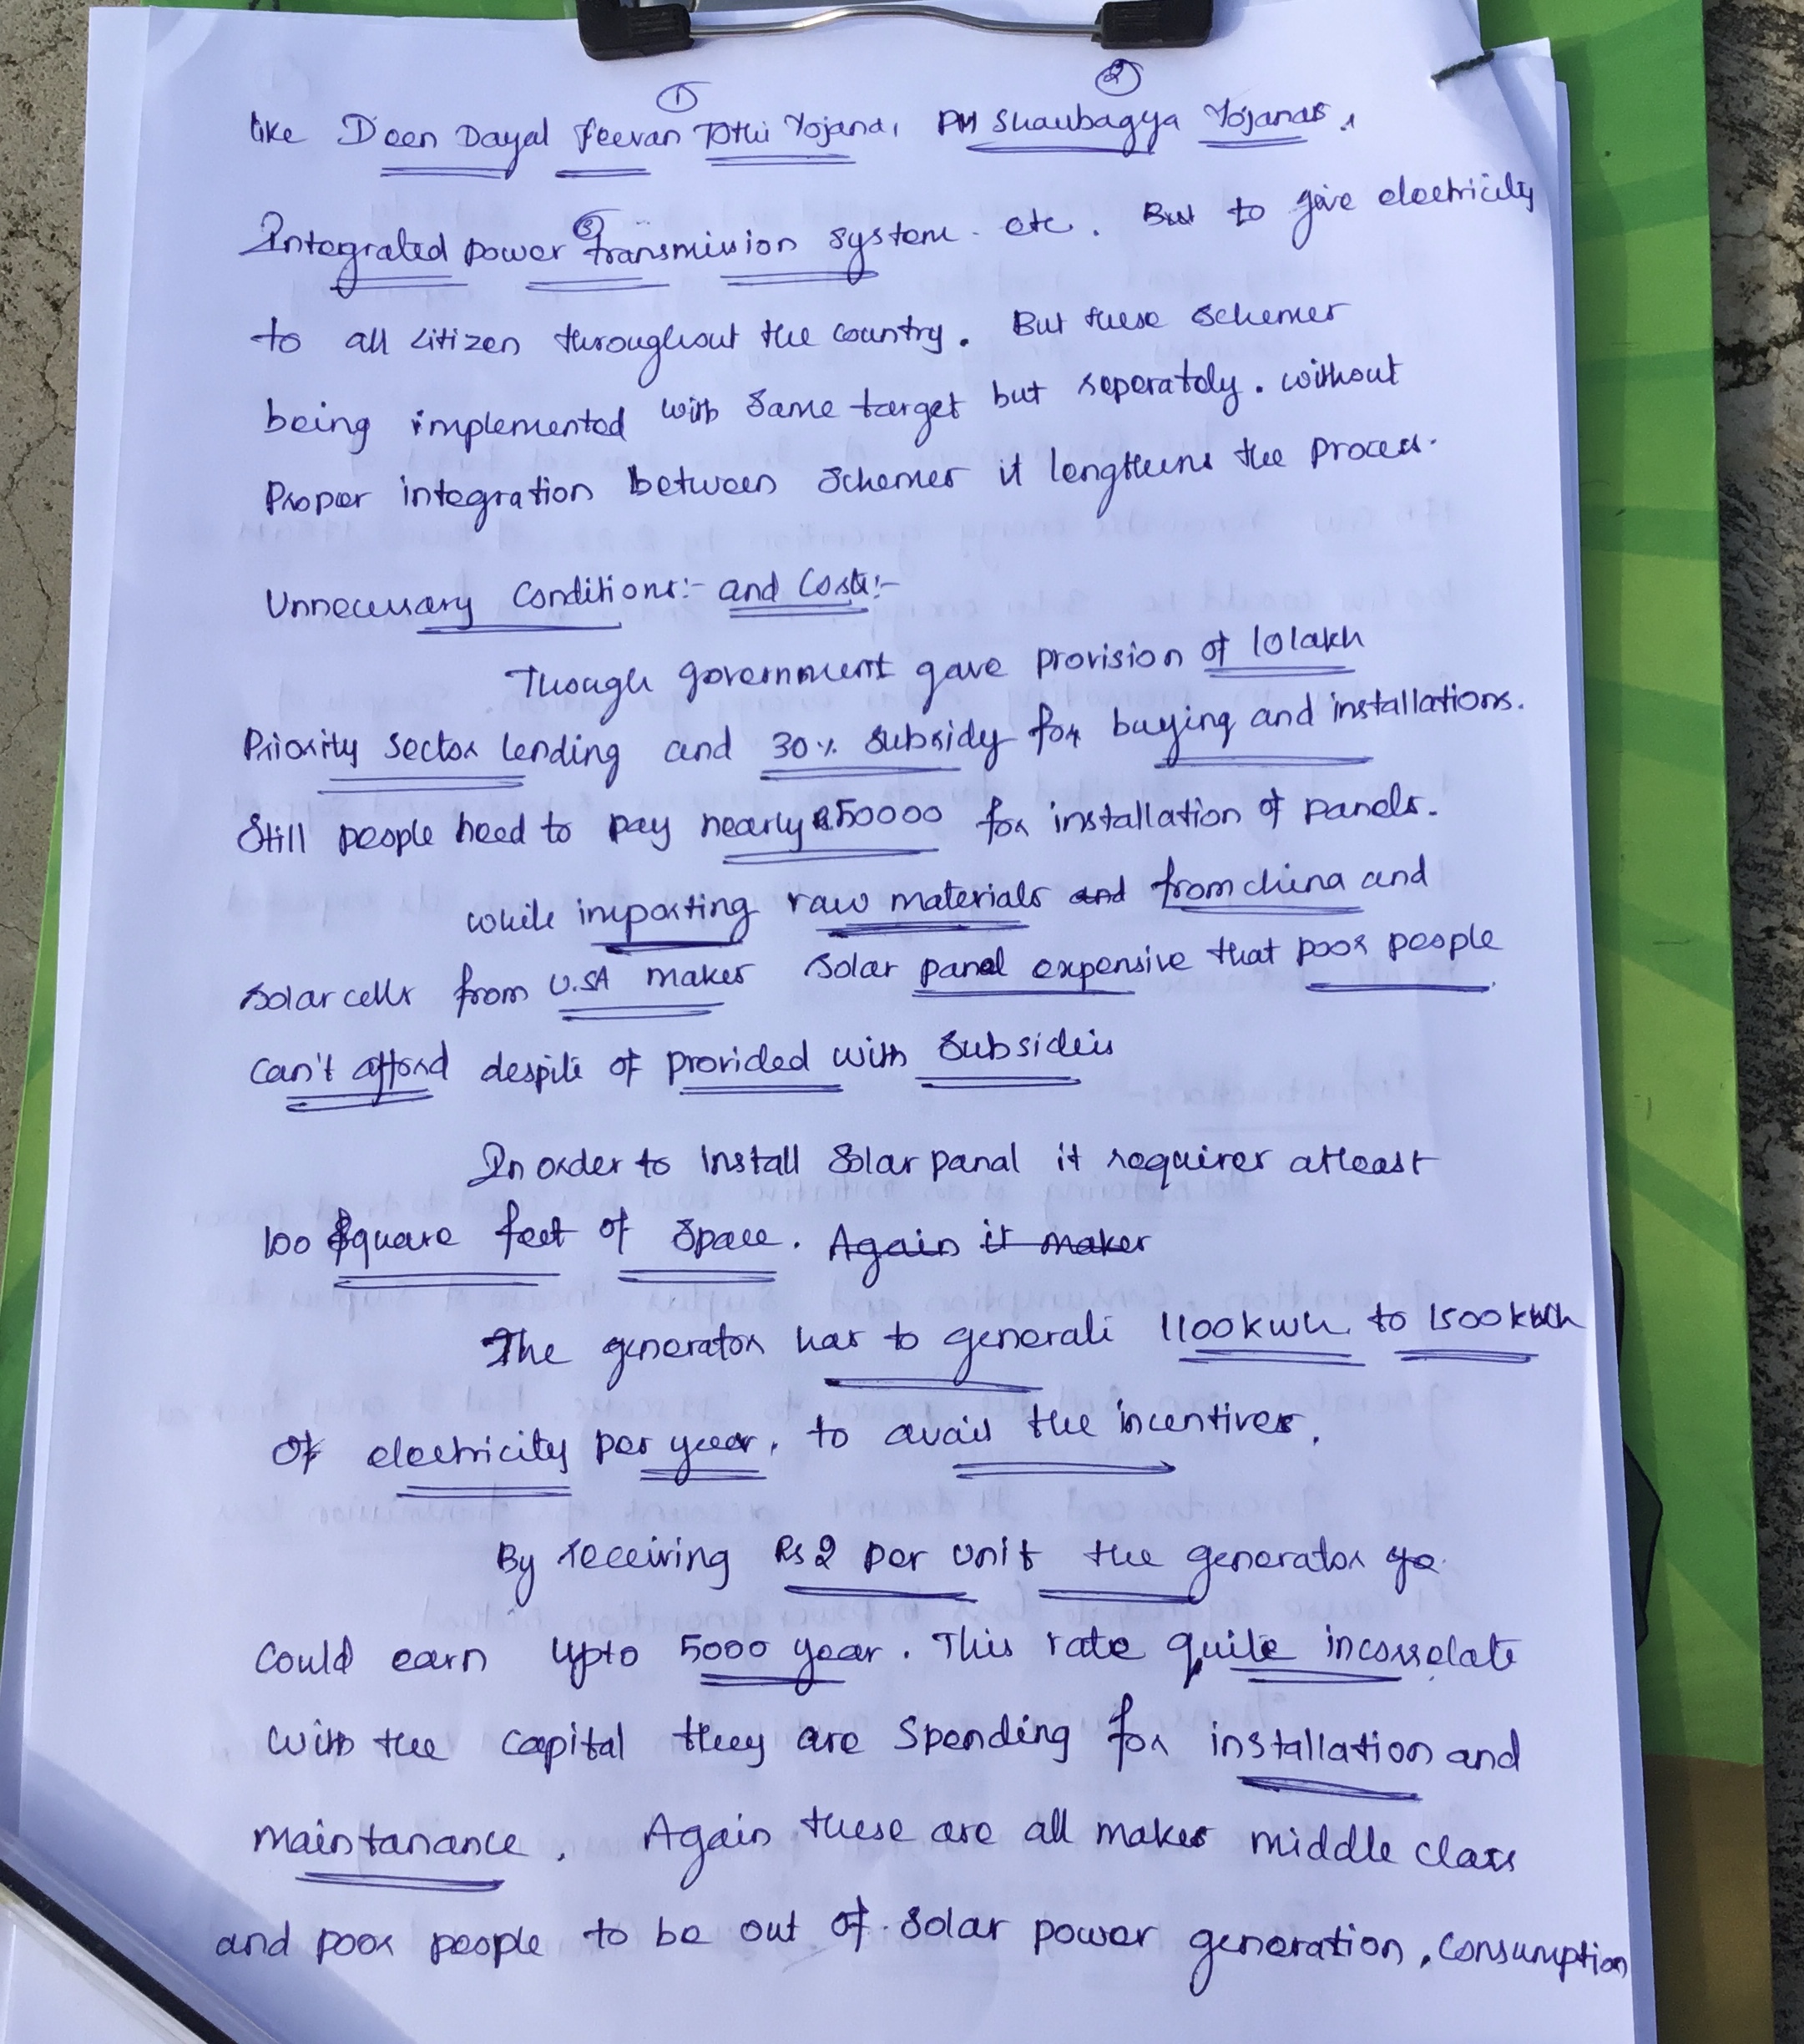 ① ②
like Deen Dayal Jeevan Jothi Yojana, PM Shaubagya Yojanas,
③
Integrated power transmission system. etc. But to give electricity
to all citizen throughout the country. But these schemes
being implemented with same target but seperately. without
Proper integration between schemes it lengthens the process.
Unnecessary Conditions:- and Costs:-
Though government gave provision of 10 lakh
Priority sector lending and 30% subsidy for buying and installations.
Still people need to pay nearly 50000 for installation of panels.
while importing raw materials and from china and
solar cells from U.SA makes solar panel expensive that poor people
can't afford despite of provided with subsideis
In order to install solar panal it requires atleast
100 square feet of space. Again it makes
The generator has to generate 1100kwh to 1500kwh
of electricity per year, to avail the incentives.
By receiving Rs 2 per unit the generator ge
Could earn upto 5000 year. This rate quite incorrelate
with the capital they are spending for installation and
maintanance. Again these are all makes middle class
and poor people to be out of solar power generation, consumption